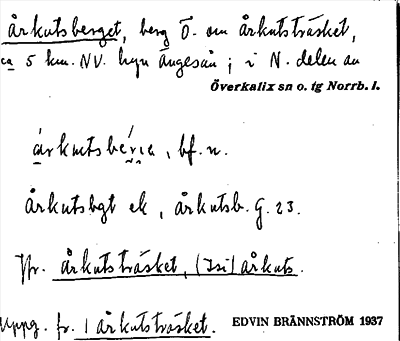 Årkutsberget, berg Ö. om Årkutsträsket,
ca 5 km. NV. byn Ängesån; i N. delen av
Överkalix sn o. tg Norrb. l.
årkutsbér̯i̯a, bf. n.
Årkutsbgt ek, Årkutsb. G. 23.
Jfr. Årkutsträsket, (Isi) årkuts.
Uppg. fr. 1 Årkutsträsket. EDVIN BRÄNNSTRÖM 1937